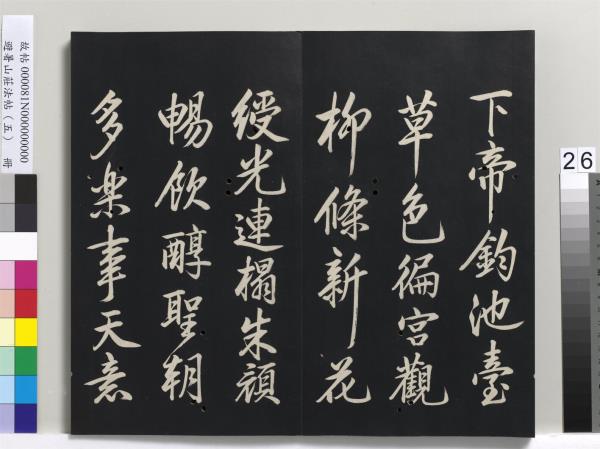 下帝鈞池臺
草色徧宮觀
柳條新花
綬光連榻朱顏
暢飲醇聖朝
多樂事天意
故帖 000081N000000000
避暑山莊法帖(五) 冊
26